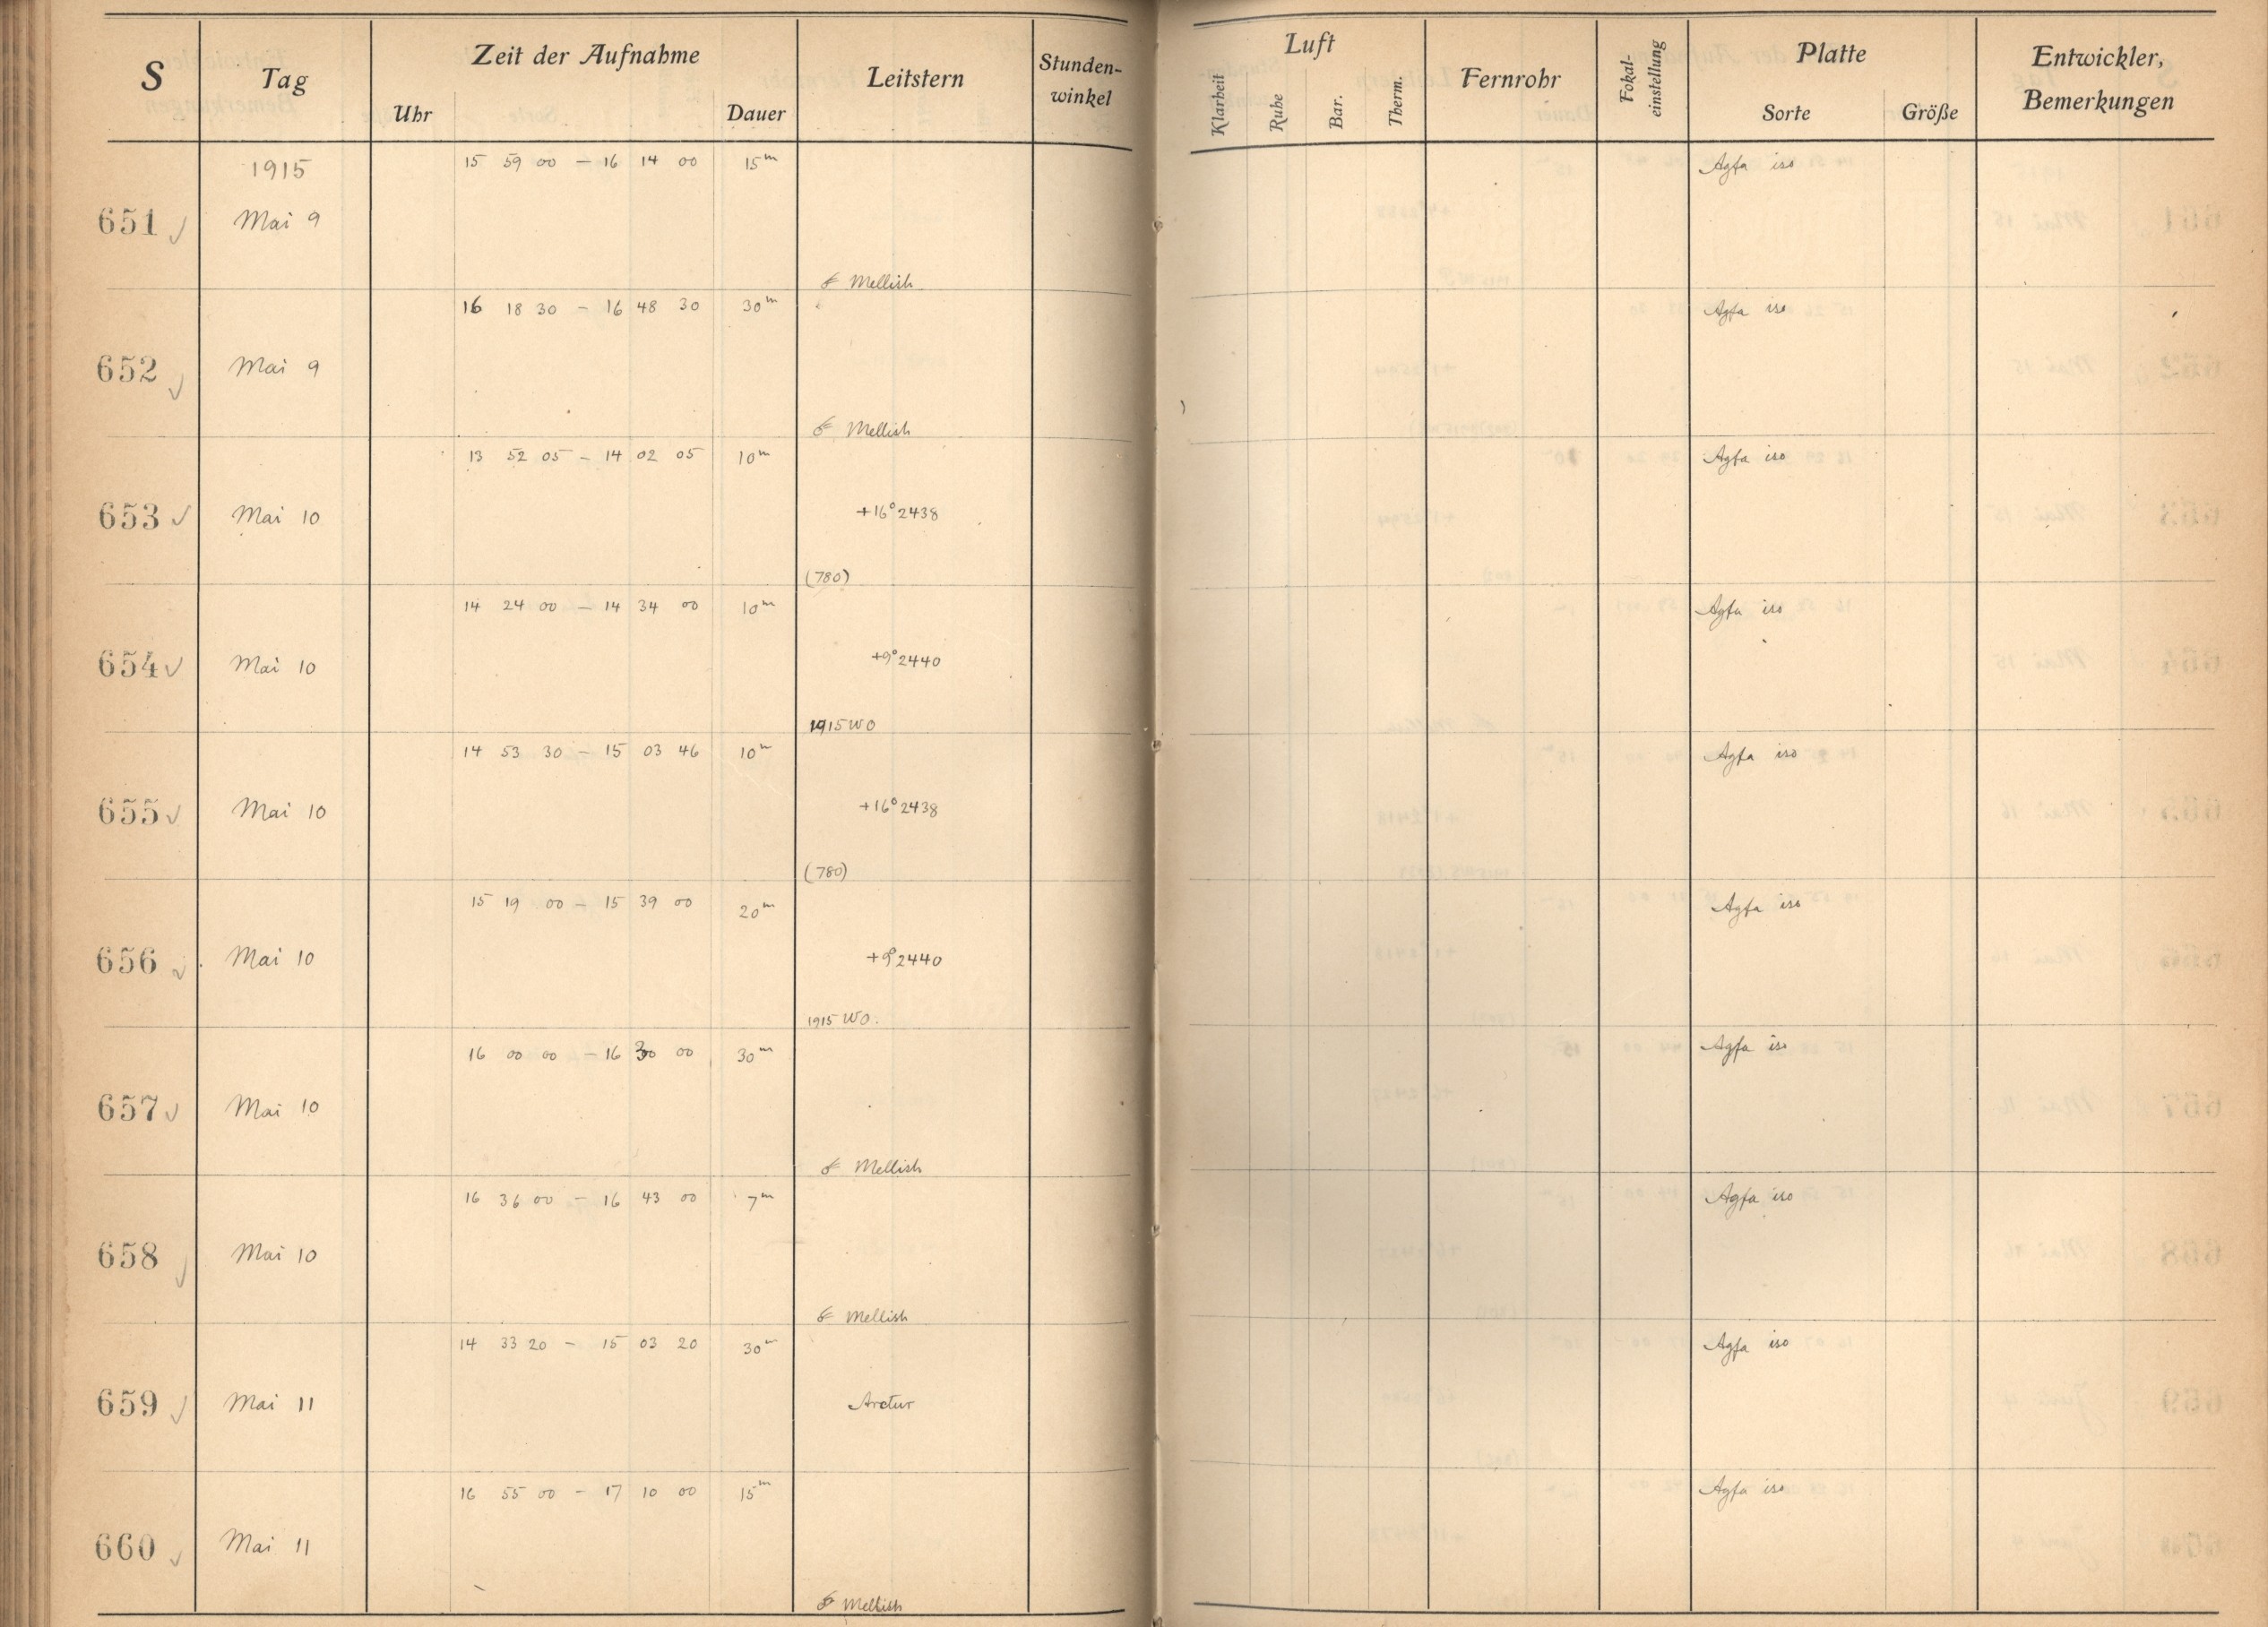 S Tag Zeit der Aufnahme Leitstern Stunden-winkel Luft Fernrohr Fokal-einstellung Platte Entwickler, Bemerkungen
Uhr Dauer Klarheit Ruhe Bar. Therm. Sorte Größe
1915 15 59 00 – 16 14 00 15m Agfa iso
651 Mai 9
☄ Mellish
16 18 30 – 16 48 30 30m Agfa iso
652 Mai 9
☄ Mellish
13 52 05 – 14 02 05 10m Agfa iso
653 Mai 10 +16° 2438
(780)
14 24 00 – 14 34 00 10m Agfa iso
654 Mai 10 +9° 2440
1915 WO
14 53 30 – 15 03 46 10m Agfa iso
655 Mai 10 +16° 2438
(780)
15 19 00 – 15 39 00 20m Agfa iso
656 Mai 10 +9° 2440
1915 WO.
16 00 00 – 16 30 00 30m Agfa iso
657 Mai 10
☄ Mellish
16 36 00 – 16 43 00 7m Agfa iso
658 Mai 10
☄ Mellish
14 33 20 – 15 03 20 30m Agfa iso
659 Mai 11 Arctur
16 55 00 – 17 10 00 15m Agfa iso
660 Mai 11
☄ Mellish